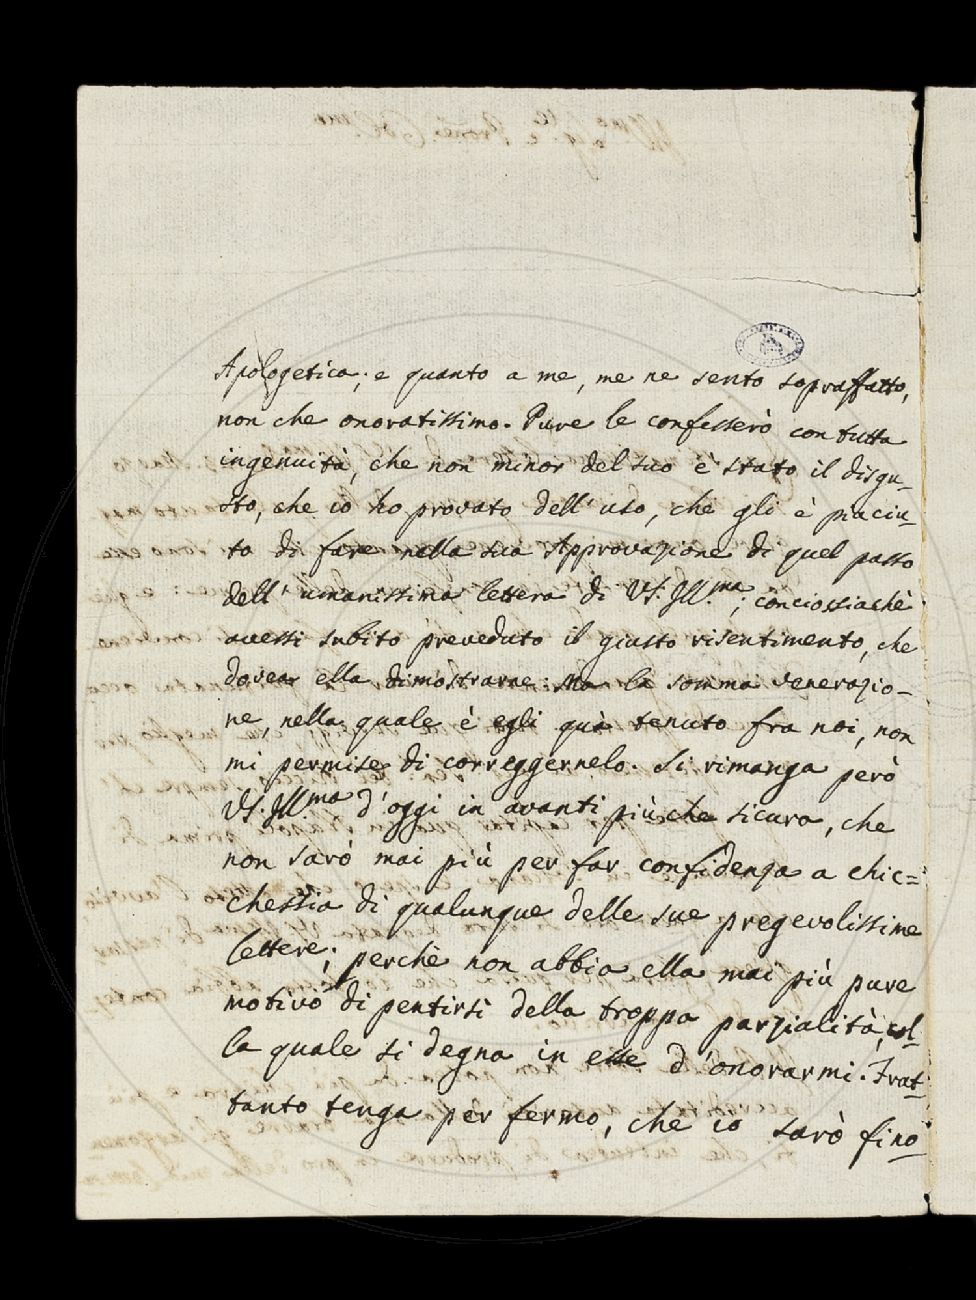 Apologetica; e quanto a me, me ne sento sopraffatto,
non che onoratissimo. Pure le confesserò con tutta
ingenuità, che non minor del suo è stato il disgu-
sto, che io ho provato dell'uso, che gli è piaciu-
to di fare nella sua Approvazione di quel passo
dell'umanissima lettera di VS. Ill.ma; conciossiachè
avessi subito preveduto il giusto risentimento, che
dovea ella dimostrarne: Ma la somma venerazio-
ne, nella quale è egli quà tenuto fra noi, non
mi permise di correggernelo. Si rimanga però
VS. Ill.ma d'oggi in avanti più che sicura, che
non sarò mai più per far confidenza a chic=
chessia di qualunque delle sue pregevolissime
lettere; perchè non abbia ella mai più pure
motivo di pentirsi della troppa parzialità, col-
la quale si degna in esse d'onorarmi. Frat-
tanto tenga per fermo, che io sarò fino